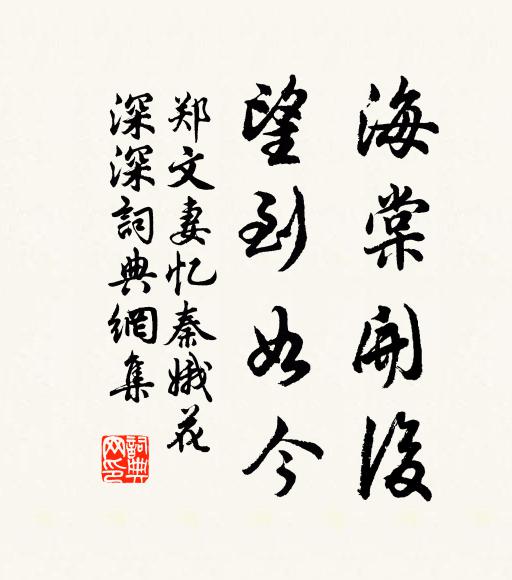 海棠開後
望到如今
郑文妻忆秦娥花
深深詞典網集
詞典
网印